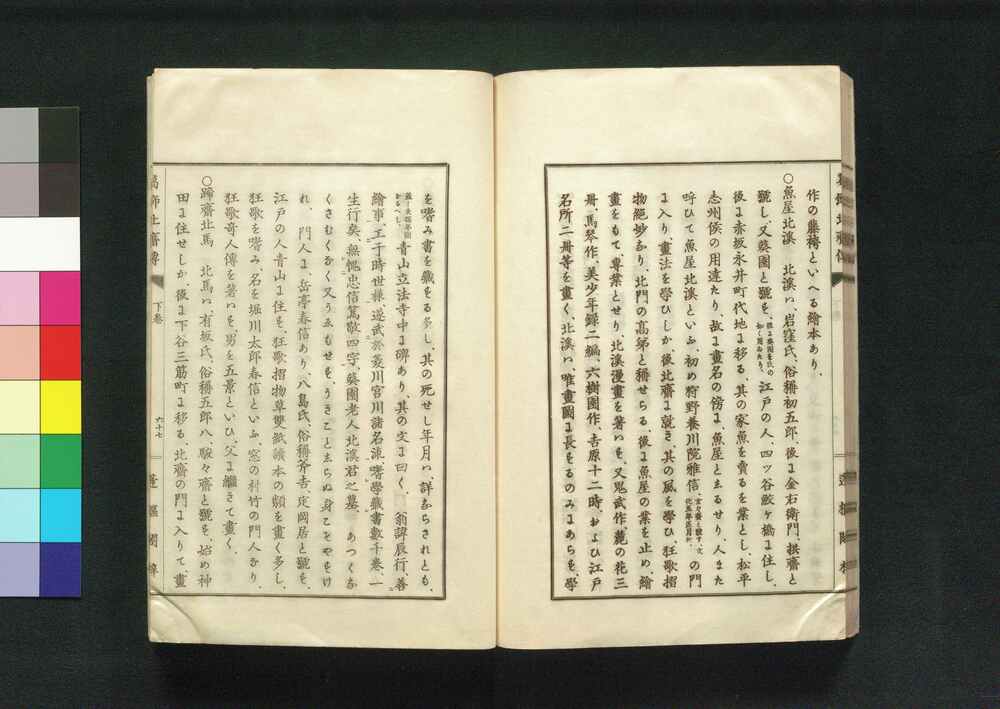 作の藤袴といへる繪本あり、
○魚屋北溪　北溪ハ、岩窪氏、俗稱初五郎、後ま金右衛門、拱齋と
號し、又葵園と號を、江戸の人、四ッ谷鮫ヶ橋ま住し、
後ま赤坂永井町代地ま移る、其の家魚を賣るを業とし、松平
志州侯の用達たり、故ま畫名の傍ま、魚屋とゑるせり、人また
呼ひて魚屋北溪といふ、初め狩野養川院雅信の門
ま入り、畫法を學ひしか、後北齋ま就き、其の風を學ひ、狂歌摺
物絕妙あり、北門の高弟と稱せらる、後ま魚屋の業を止め、繪
畫をもて、專業とせり、北溪漫畫を著いを、又鬼武作、麓の花三
册、馬琴作、美少年録二編、六樹園作、吉原十二時、および江戸
名所二册等を畫く、北溪ハ、唯畫圖ま長をるのみまあらを、學
を嗜み書を藏をる多し、其の死せし年月ハ、詳ならされとも、
青山立法寺中ま碑あり、其の文ま曰く、翁諱辰行、善
繪事、工于時世樣、遂武於菱川宮川諸名流、嗜學藏書數千卷、一
生行矣、無愧忠信篤敬四字、葵園老人北溪君之墓、あつくな
くさむくなく又うゑもせを、うきことゑらぬ身こそやをけ
れ、門人ま、岳亭春信あり、八島氏、俗稱斧吉、定岡居と號を、
江戸の人青山ま住を、狂歌摺物草雙紙讀本の類を畫く多し、
狂歌を嗜み、名を堀川太郎春信といふ、窓の村竹の門人なり、
狂歌奇人傳を著いを、男を五景といひ、父ま繼きて畫く、
○蹄齋北馬　北馬ハ、有坂氏、俗稱五郎八、駿々齋と號を、始め神
田ま住せしか、後ま下谷三筋町ま移る、北齋の門ま入りて、畫
下卷
六十七